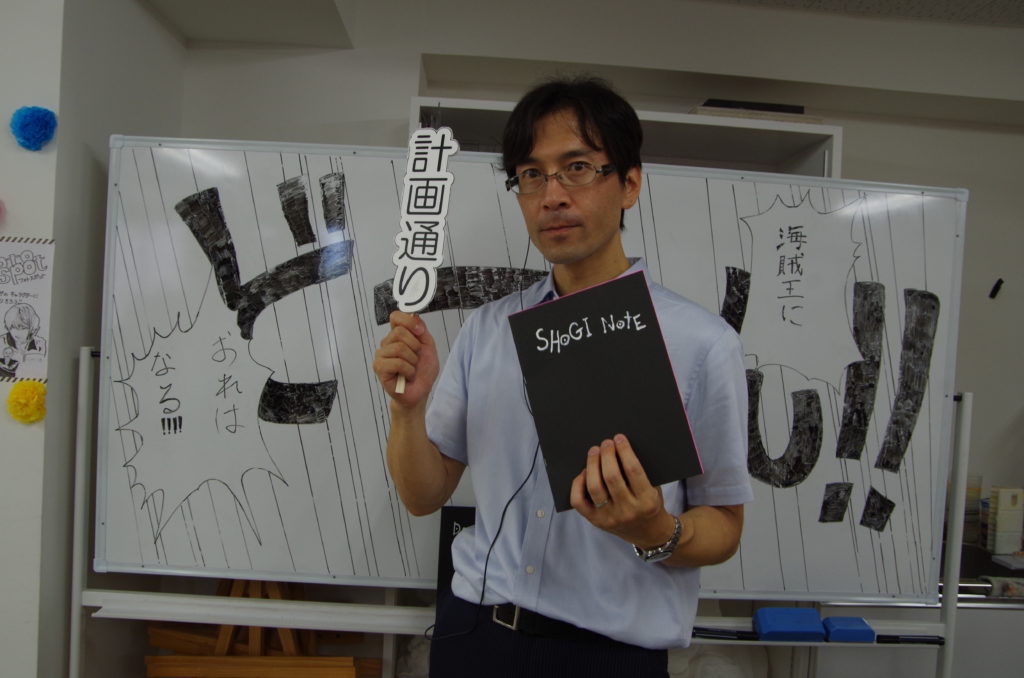 計画通り
SHOGI NOTE
ドーん!!
海賊王に
おれは
なる!!!!